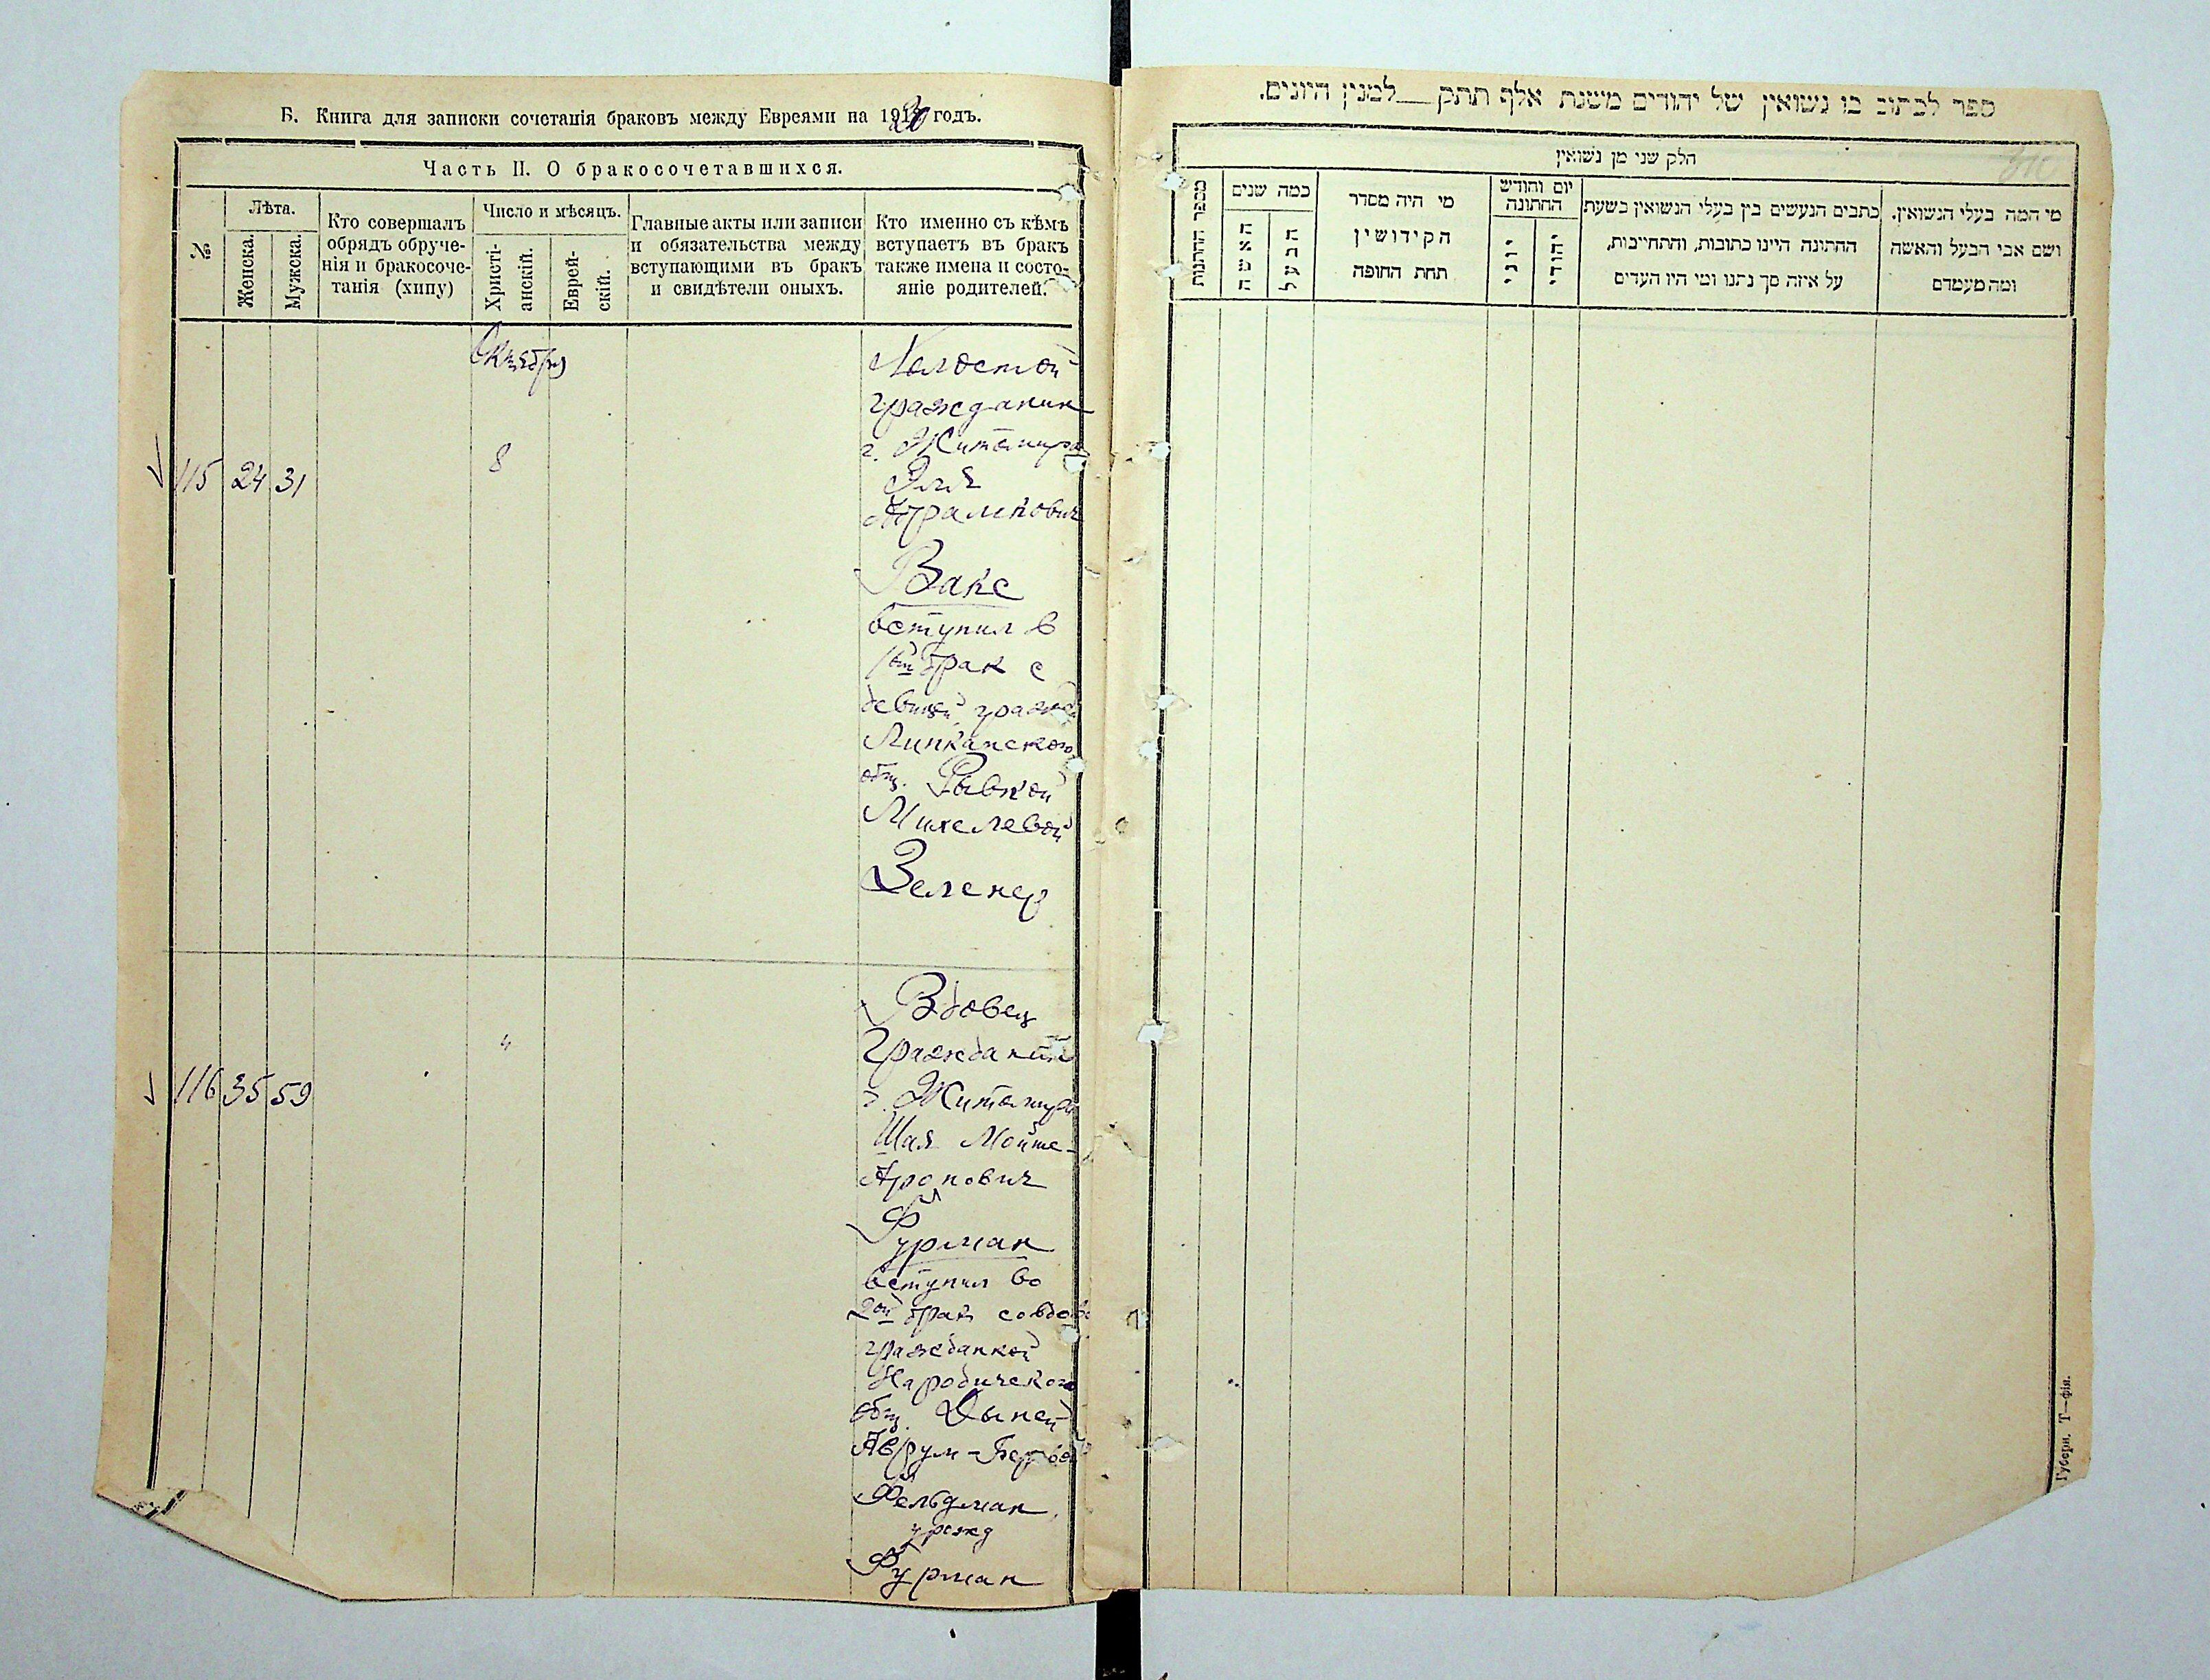 Б. Книга для записки сочетанія браковъ между Евреями на 1920 годъ.
Часть II. О бракосочетавшихся.
№
Лѣта.
Женска.
Мужска.
Кто совершалъ
обрядъ обруче-
нія и бракосоче-
танія (хипу)
Число и мѣсяцъ.
Христі-
анскій.
Еврей-
скій.
Главные акты или записи
и обязательства между
вступающими въ бракъ
и свидѣтели оныхъ.
Кто именно съ кѣмъ
вступаетъ въ бракъ
также имена и состо-
яніе родителей.
Октября
115 24 31
8
Холостой
гражданин
г. Житомира
Эля
Абрамович
Вакс
вступил в
1ый брак с
девицей гражд
Липканского
общ. Ривкой
Михелевой
Зеленер
116 35 59
"
Вдовец
Гражданин
г. Житомира
Шая Мойше-
Аронович
Фурман
вступил во
2ой брак со вдово
гражданкой
Народичского
общ. Дыней
Аврум-Берков
Фельдман
урожд
Фурман
ספר לכתוב בו נשואין של יהודים משנת אלף תתק למנין היונים.
חלק שני מן נשואין
מספר החתנות
כמה שנים
האשה
הבעל
מי היה מסדר
הקידושין
תחת החופה
יום וחודש
החתונה
יוני
יהודי
כתבים הנעשים בין בעלי הנשואין בשעת
החתונה היינו כתובות, והתחייבות,
על איזה סך נתנו ומי היו העדים
מי המה בעלי הנשואין.
ושם אבי הבעל והאשה
ומה מעמדם
Губерн. Т—фія.